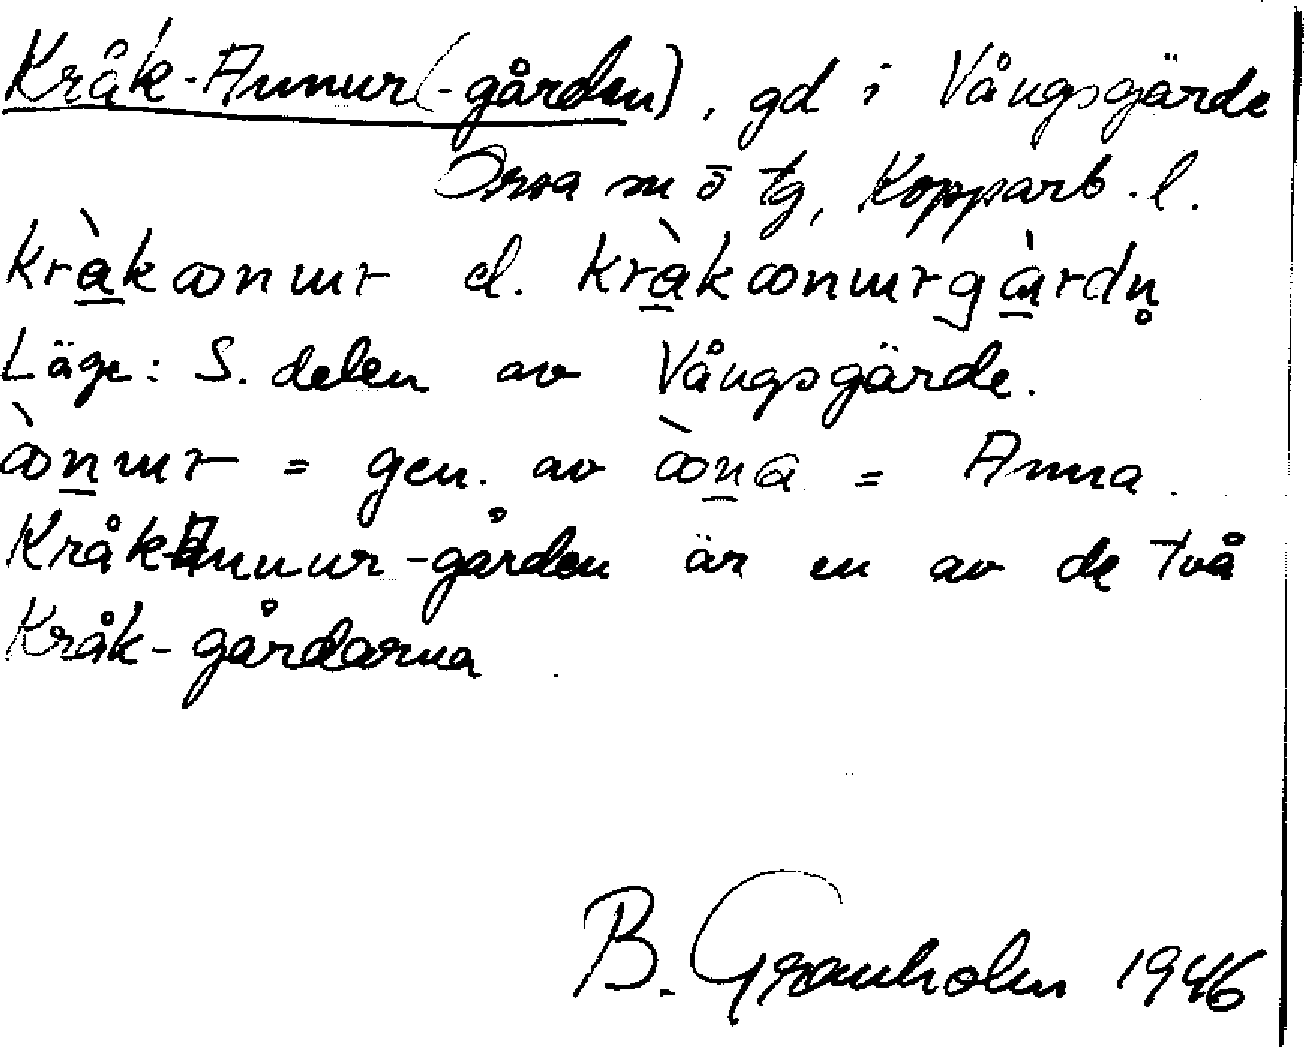 Kråk-Annur(-gården), gd i Vångsgärde
Orsa sn o tg, Kopparb. l.
kràkɷnɯr el. kràkɷnɯrgàrdn̥
Läge: S. delen av Vångsgärde.
ɷ̀nɯr = gen. av ɷ̀na = Anna.
Kråk-Annur-gården är en av de två
Kråk-gårdarna.
B. Granholm 1946